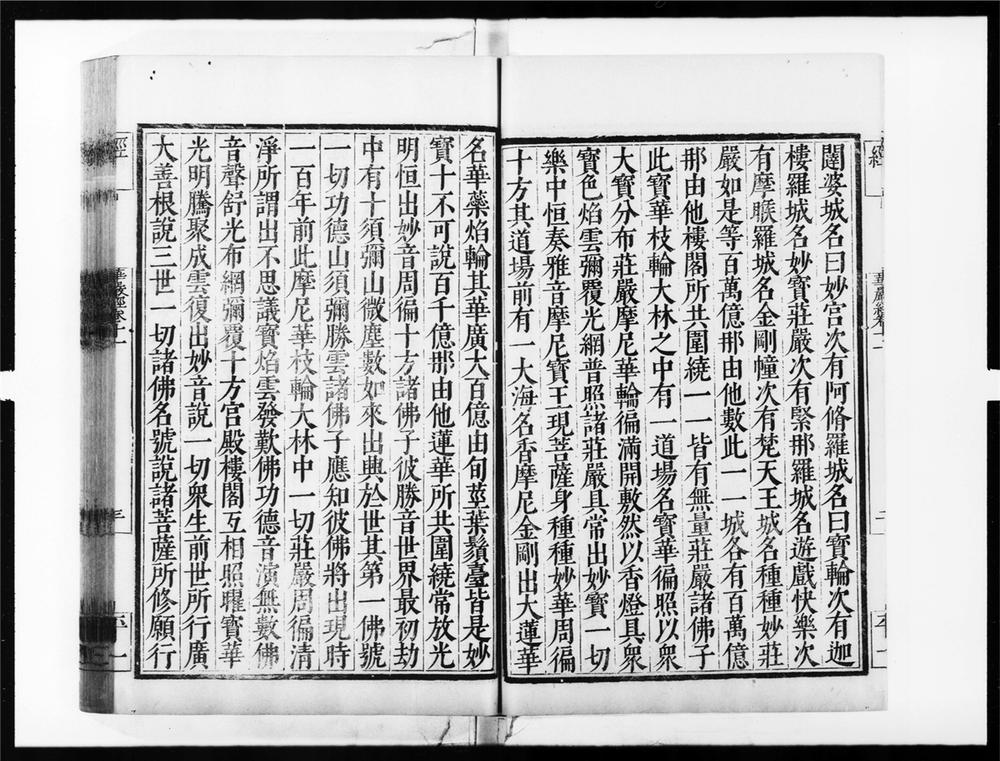 闥婆城名曰妙宮次有阿脩羅城名曰寶輪次有迦
樓羅城名妙寶莊嚴次有緊那羅城名遊戲快樂次
有摩睺羅城名金剛幢次有梵天王城名種種妙莊
嚴如是等百萬億那由他數此一一城各有百萬億
那由他樓閣所共圍繞一一皆有無量莊嚴諸佛子
此寶華枝輪大林之中有一道場名寶華徧照以衆
大寶分布莊嚴摩尼華輪徧滿開敷然以香燈具衆
寶色焰雲彌覆光網普照諸莊嚴具常出妙寶一切
樂中恒奏雅音摩尼寶王現菩薩身種種妙華周徧
十方其道場前有一大海名香摩尼金剛出大蓮華
名華藥焰輪其華廣大百億由旬莖葉鬚臺皆是妙
寶十不可說百千億那由他蓮華所共圍繞常放光
明恒出妙音周徧十方諸佛子彼勝音世界最初劫
中有十須彌山微塵數如來出興於世其第一佛號
一切功德山須彌勝雲諸佛子應知彼佛將出現時
一百年前此摩尼華枝輪大林中一切莊嚴周徧清
淨所謂出不思議寶焰雲發歎佛功德音演無數佛
音聲舒光布網彌覆十方宮殿樓閣互相照曜寶華
光明騰聚成雲復出妙音說一切衆生前世所行廣
大善根說三世一切諸佛名號說諸菩薩所修願行
華嚴經卷十一